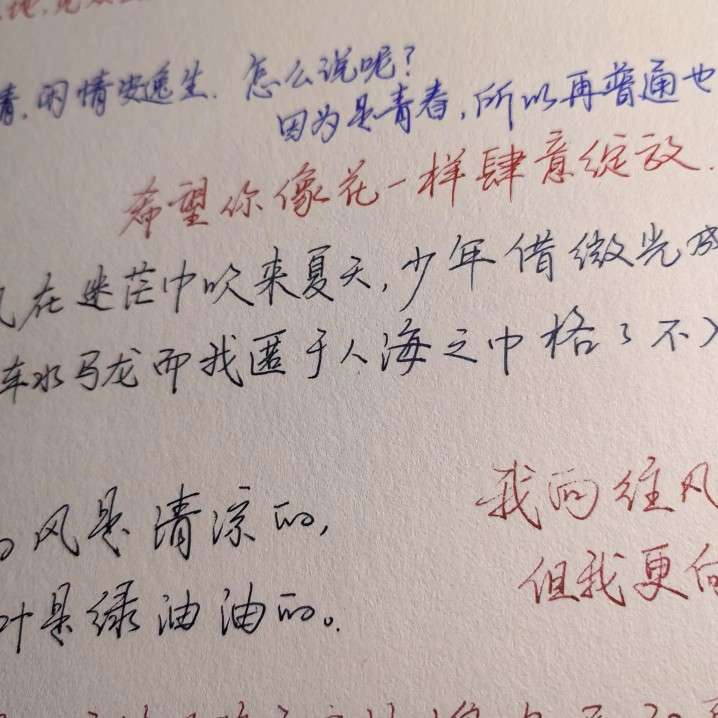 情,闲情安逸生. 怎么说呢?
因为是青春,所以再普通也
希望你像花一样肆意绽放.
在迷茫中吹来夏天,少年借微光成
车水马龙而我匿于人海之中格了不
风是清凉的,
叶是绿油油的。
我的往风
但我更向